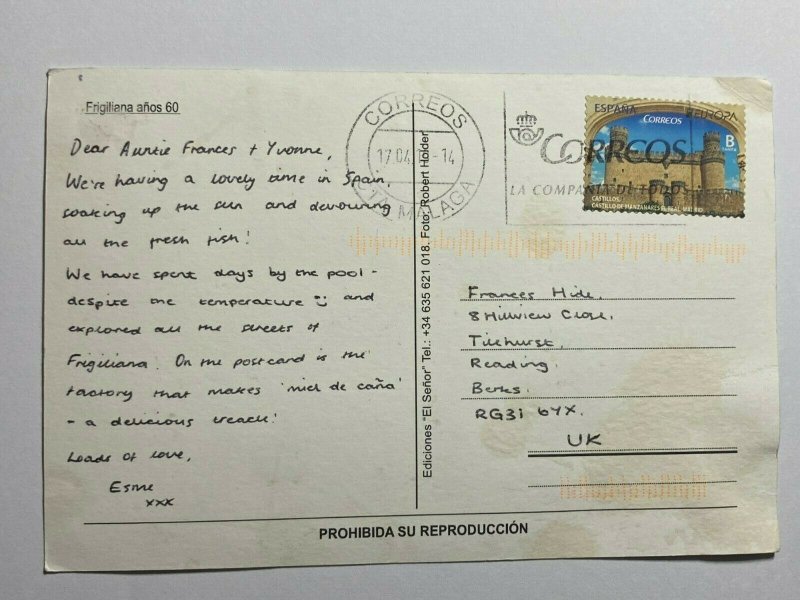 Frigiliana años 60
Dear Auntie Frances + Yvonne,
We're having a lovely time in Spain,
soaking up the sun and devouring
all the fresh fish!
We have spent days by the pool -
despite the temperature and
explored all the streets of
Frigiliana. On the postcard is the
factory that makes 'miel de caña'
- a delicious treacle!
Loads of love,
Esme
xxx
Ediciones "El Señor" Tel.: +34 635 621 018. Foto: Robert Holder
CORREOS
17.04 - 14
MALAGA
CORREOS
LA COMPAÑIA DE TODOS
ESPAÑA
EUROPA
CORREOS
B
CASTILLOS
CASTILLO DE MANZANARES EL REAL. MADRID
Frances Hide.
8 Hillview Close.
Tilehurst.
Reading.
Berks.
RG31 6YX.
UK
PROHIBIDA SU REPRODUCCIÓN